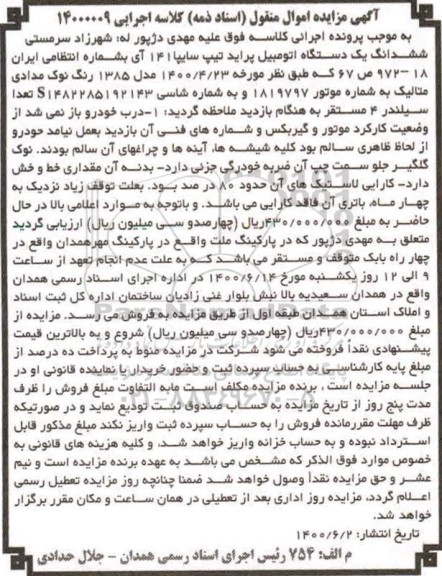 آگهی مزایده اموال منقول (اسناد ذمه) کلاسه اجرایی ۱۴۰۰۰۰۰۹
به موجب پرونده اجرائی کلاسه فوق علیه مهدی دژپور له: شهرزاد سرمستی
ششدانگ یک دستگاه اتومبیل پراید تیپ سایپا۱۴۱ آی بشماره انتظامی ایران
۱۸ –۹۷۲ ص ۶۷ که طبق نظر مورخه ۱۴۰۰/۴/۲۳ مدل ۱۳۸۵ رنگ نوک مدادی
متالیک به شماره موتور ۱۸۱۹۷۹۷ و به شماره شاسی S۱۴۸۲۲۸۵۱۹۲۱۴۳ تعدا
سیلندر ۴ مستقر به هنگام بازدید ملاحظه گردید: ۱–درب خودرو باز نمی شد از
وضعیت کارکرد موتور و گیربکس و شماره های فنی آن بازدید بعمل نیامد خودرو
از لحاظ ظاهری سالم بود کلیه شیشه ها، آینه ها و چراغهای آن سالم بودند. نوک
گلگیر جلو سمت چپ آن ضربه خوردگی جزئی دارد– بدنه آن مقداری خط و خش
دارد– کارایی لاستیک های آن حدود ۸۰ در صد بود. بعلت توقف زیاد نزدیک به
چهار ماه، باتری آن فاقد کارایی می باشد. و باتوجه به موارد اعلامی بالا در حال
حاضر به مبلغ ۴۳۰/۰۰۰/۰۰۰ریال (چهارصدو سی میلیون ریال) ارزیابی گردید
متعلق به مهدی دژپور که در پارکینگ ملت واقع در پارکینگ مهرهمدان واقع در
چهار راه بابک متوقف و مستقر می باشد که به علت عدم انجام تعهد از ساعت
۹ الی ۱۲ روز یکشنبه مورخ ۱۴۰۰/۶/۱۴ در اداره اجرای اسناد رسمی همدان
واقع در همدان سعیدیه بالا نبش بلوار غنی زادیان ساختمان اداره کل ثبت اسناد
و املاک استان همدان طبقه اول از طریق مزایده به فروش می رسد. مزایده از
مبلغ ۴۳۰/۰۰۰/۰۰۰ریال (چهارصدو سی میلیون ریال) شروع و به بالاترین قیمت
پیشنهادی نقدأ فروخته می شود شرکت در مزایده منوط به پرداخت ده درصد از
مبلغ پایه کارشناسی به حساب سپرده ثبت و حضور خریدار یا نماینده قانونی او در
جلسه مزایده است , برنده مزایده مکلف است مابه التفاوت مبلغ فروش را ظرف
مدت پنج روز از تاریخ مزایده به حساب صندوق ثبت تودیع نماید و در صورتیکه
ظرف مهلت مقررمانده فروش را به حساب سپرده ثبت واریز نکند مبلغ مذکور قابل
استرداد نبوده و به حساب خزانه واریز خواهد شد. و کلیه هزینه های قانونی به
خصوص موارد فوق الذکر که مشخص می باشد به عهده برنده مزایده است و نیم
عشر و حق مزایده نقدأ وصول خواهد شد ضمنا چنانچه روز مزایده تعطیل رسمی
اعلام گردد، مزایده روز اداری بعد از تعطیلی در همان ساعت و مکان مقرر برگزار
خواهد شد.
تاریخ انتشار: ۱۴۰۰/۶/۲
م الف: ۷۵۴ رئیس اجرای اسناد رسمی همدان – جلال حدادی